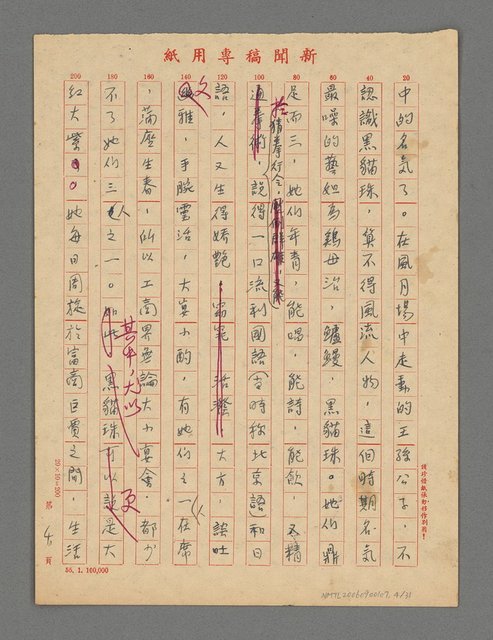 新聞稿專用紙
中的名氣了。在風月場中走動的王孫公子,不
認識黑貓珠,算不得風流人物,這個時期名氣
最噪的藝妲為鷄母治,鱸鰻,黑貓珠。她們鼎
足而三,她們年青,能唱,能詩,能飲,又精
於猜拳行令,
通拳術,說得一口流利國語(當時称北京語)和日
語,人又生得嬌艷,大方,談吐
文雅,手腕靈活,大宴小酌,有她們之一在席
,滿座生春,所以工商界無論大小宴會,都少
不了她們三人之一。其中,尤以黑貓珠更可以說是大
紅大紫。她每日周旋於富商巨賈之間,生活
20
40
60
80
100
120
140
160
180
200
請珍惜紙張勿移作別用!
20×10=200
第4頁
56.1.100,000
NMTL20060900107.4/31